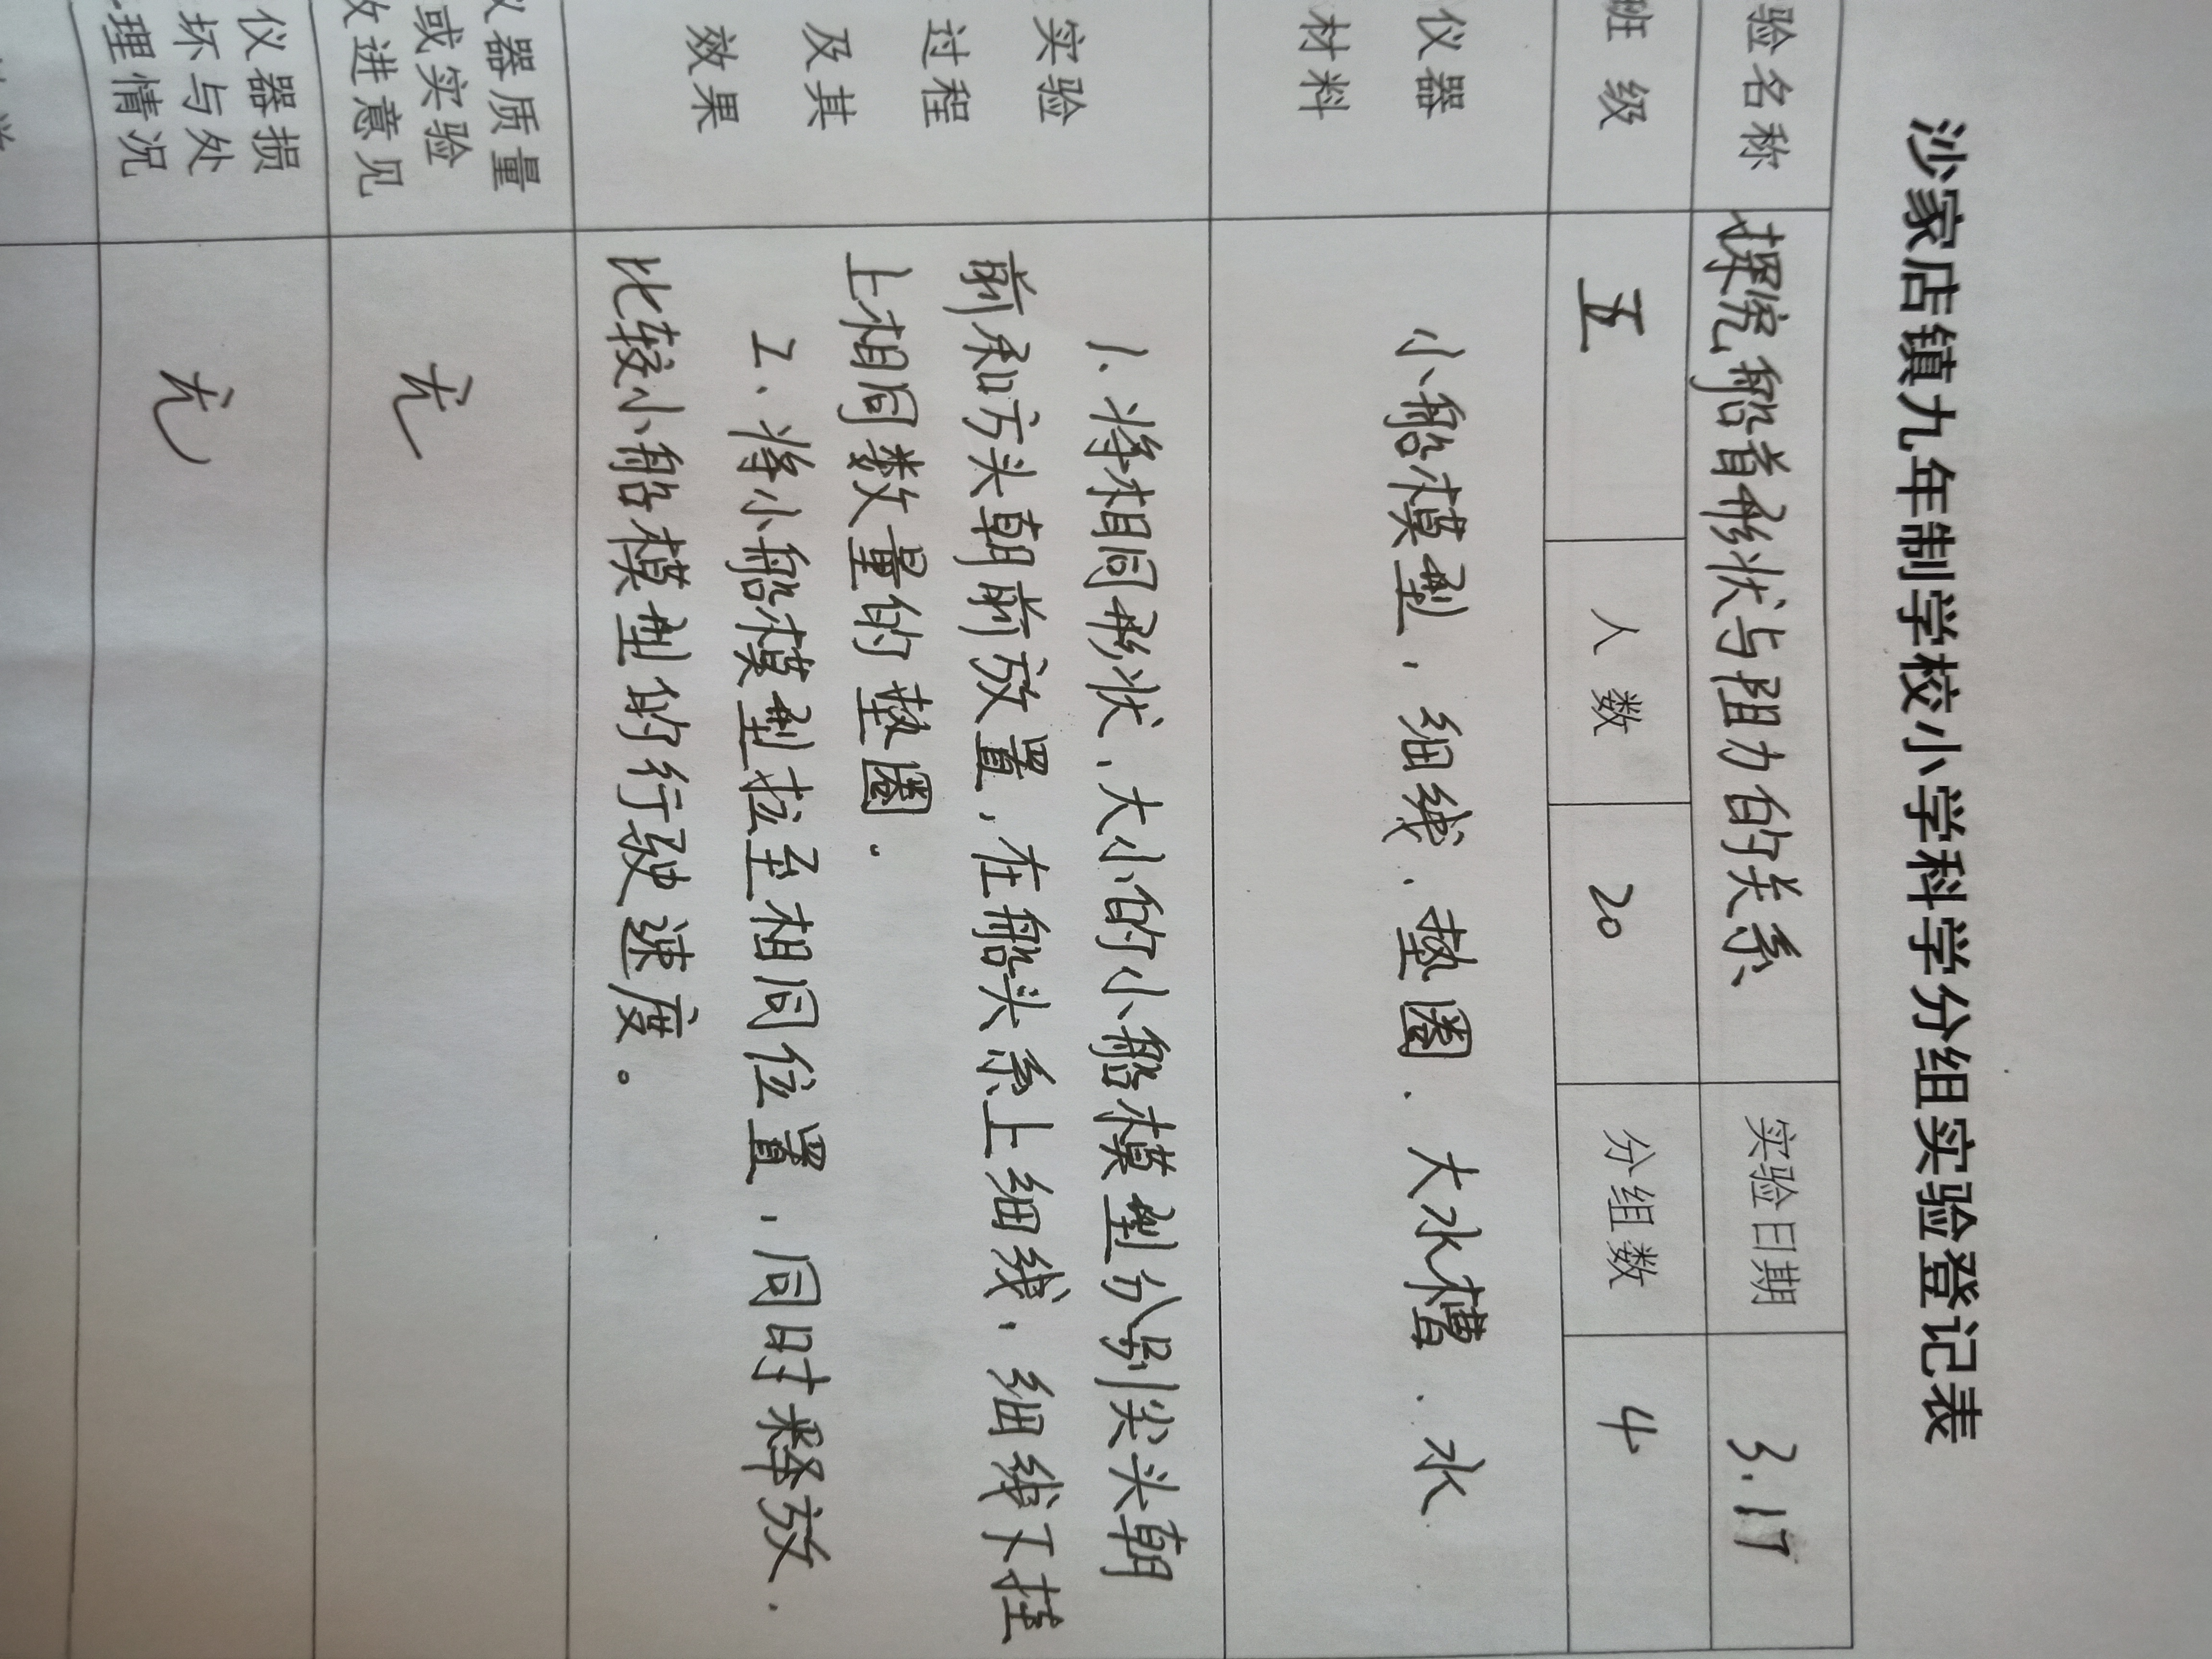 沙家店镇九年制学校小学科学分组实验登记表
验名称 探究船首形状与阻力的关系 实验日期 3.17
班 级 五 人 数 20 分组数 4
仪器
材料
小船模型，细线、垫圈、大水槽、水
实验
过程
及其
效果
1.将相同形状、大小的小船模型分别尖头朝
前和方头朝前放置，在船头系上细线，细线下挂
上相同数量的垫圈。
2、将小船模型拉至相同位置，同时释放.
比较小船模型的行驶速度。
仪器质量
或实验
改进意见
无
仪器损
坏与处
理情况
无